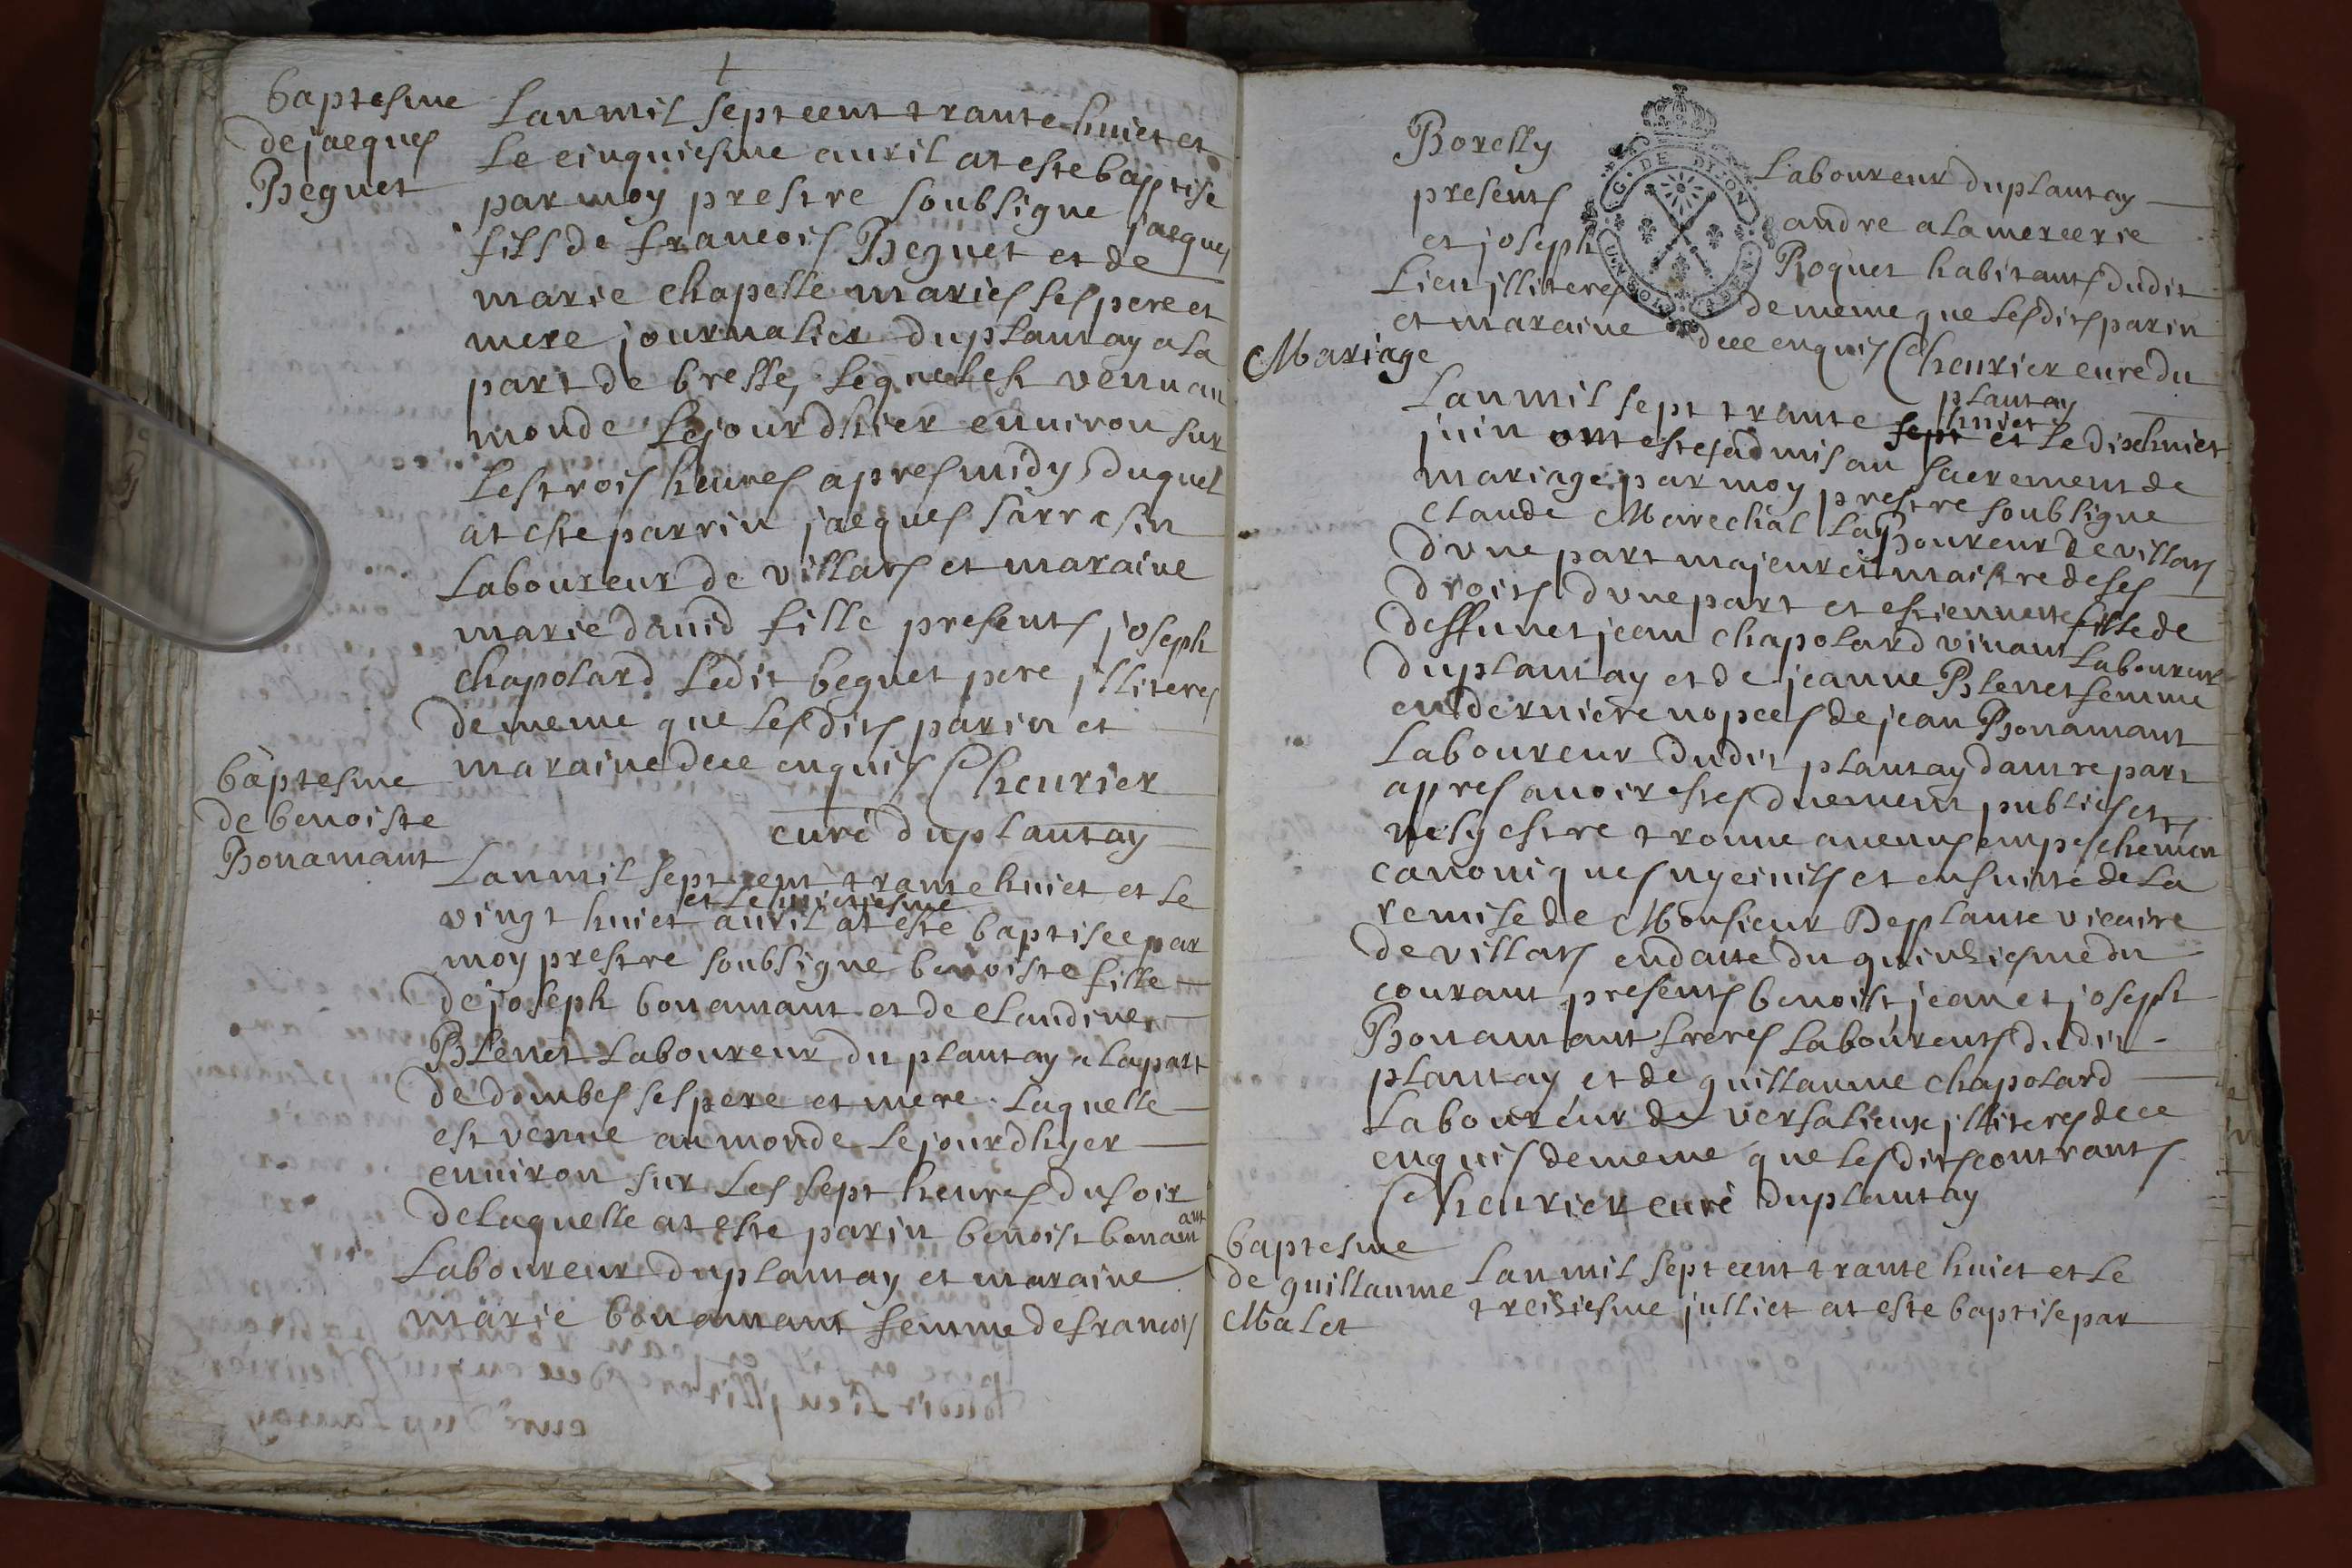 baptesme
de jacques
Beguet
Lan mil sept cent trante huict et
Le cinquiesme auril at este baptise
par moy prestre soubsigne jacques
fils de francois Beguet et de
marie chapelle maries ses pere et
mere journalier du plantay a la
part de bresse, lequel est venu au
monde le jourdhier enuiron sur
Les trois heures apres midy, duquel
at este parrin jacques sarrasin
Laboureur de villars et maraine
marie dauid fille presents joseph
chapolard ledit beguet pere jlliteres
de meme que lesdits parin et
maraine de ce enquis Cheurier
curé du plantay
baptesme
de benoiste
Bonamant
Lan mil sept cent trante huict et le
et le huictiesme
vingt huict auril at este baptisee par
moy prestre soubsigne benoiste fille
de joseph bonamant et de claudine
Blenet Laboureur du plantay a la part
de dombes ses pere et mere. Laquelle
est venue au monde le jourdhyer
enuiron sur Les sept heures du soir
de laquelle at este parin benoist bonamant
Laboureur du plantay et maraine
marie bonamant femme de francois
Borelly Laboureur du plantay
presents andre a la mercerie
et joseph Roquet habitants dudit
Lieu jlliteres de meme que lesdits parin
et maraine de ce enquis Cheurier cure du
plantay
Mariage
Lan mil sept trante sept huict et le dixhuict
juin ont estes admis au sacrement de
mariage par moy prestre soubsigne
claude Marechal Laboureur de villars
dvne part majeur et maistre de ses
droits dvne part et estiennette fille de
deffunct jean chapolard viuant Laboureur
du plantay et de jeanne Blenet femme
en derniere nopces de jean Bonamant
Laboureur dudit plantay dautre part
apres auoir estes duement publies et
ne sy estre trouue aucuns empeschemen
canoniques ny ciuils et ensuitte de La
remise de Monsieur Deplante vicaire
de villars en datte du quinziesme du
courant presents benoist, jean et joseph
Bonamant freres Laboureurs dudit
plantay et de guillaume chapolard
Laboureur de versalieux jlliteres de ce
enquis de meme que lesdits contrants
Cheurier curé du plantay
baptesme
de guillaume
Malet
Lan mil sept cent trante huict et Le
treiziesme julliet at este baptise par
G. DE DIJON